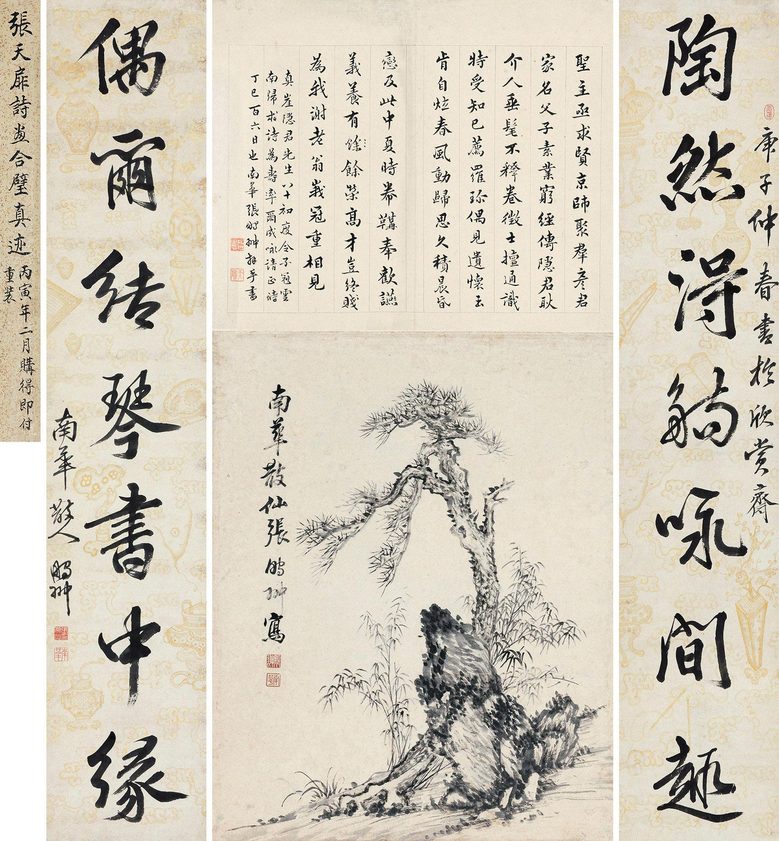 陶然得觴詠間趣
庚子仲春書於欣賞齋
聖主亟求賢京師聚羣彥君
家名父子素業窮經傳隱君耿
介人垂髦不釋卷徵士擅通識
特受知已薦羅珎偶見遺懷玉
肯自炫春風動歸思久積晨昏
戀及此中夏時帣韝奉歡讌
義養有餘餘榮高才豈終賤
為我謝老翁峩冠重相見
真崖隱君先生八十初度令子冠雲
南歸求詩為壽率爾成咏請正時
丁巳百六日也南華張鵬翀拜手書
南華散仙張鵬翀寫
偶爾結琴書中緣
南華散人鵬翀
張天扉詩畫合璧真迹
丙寅年二月購得即付
重裝